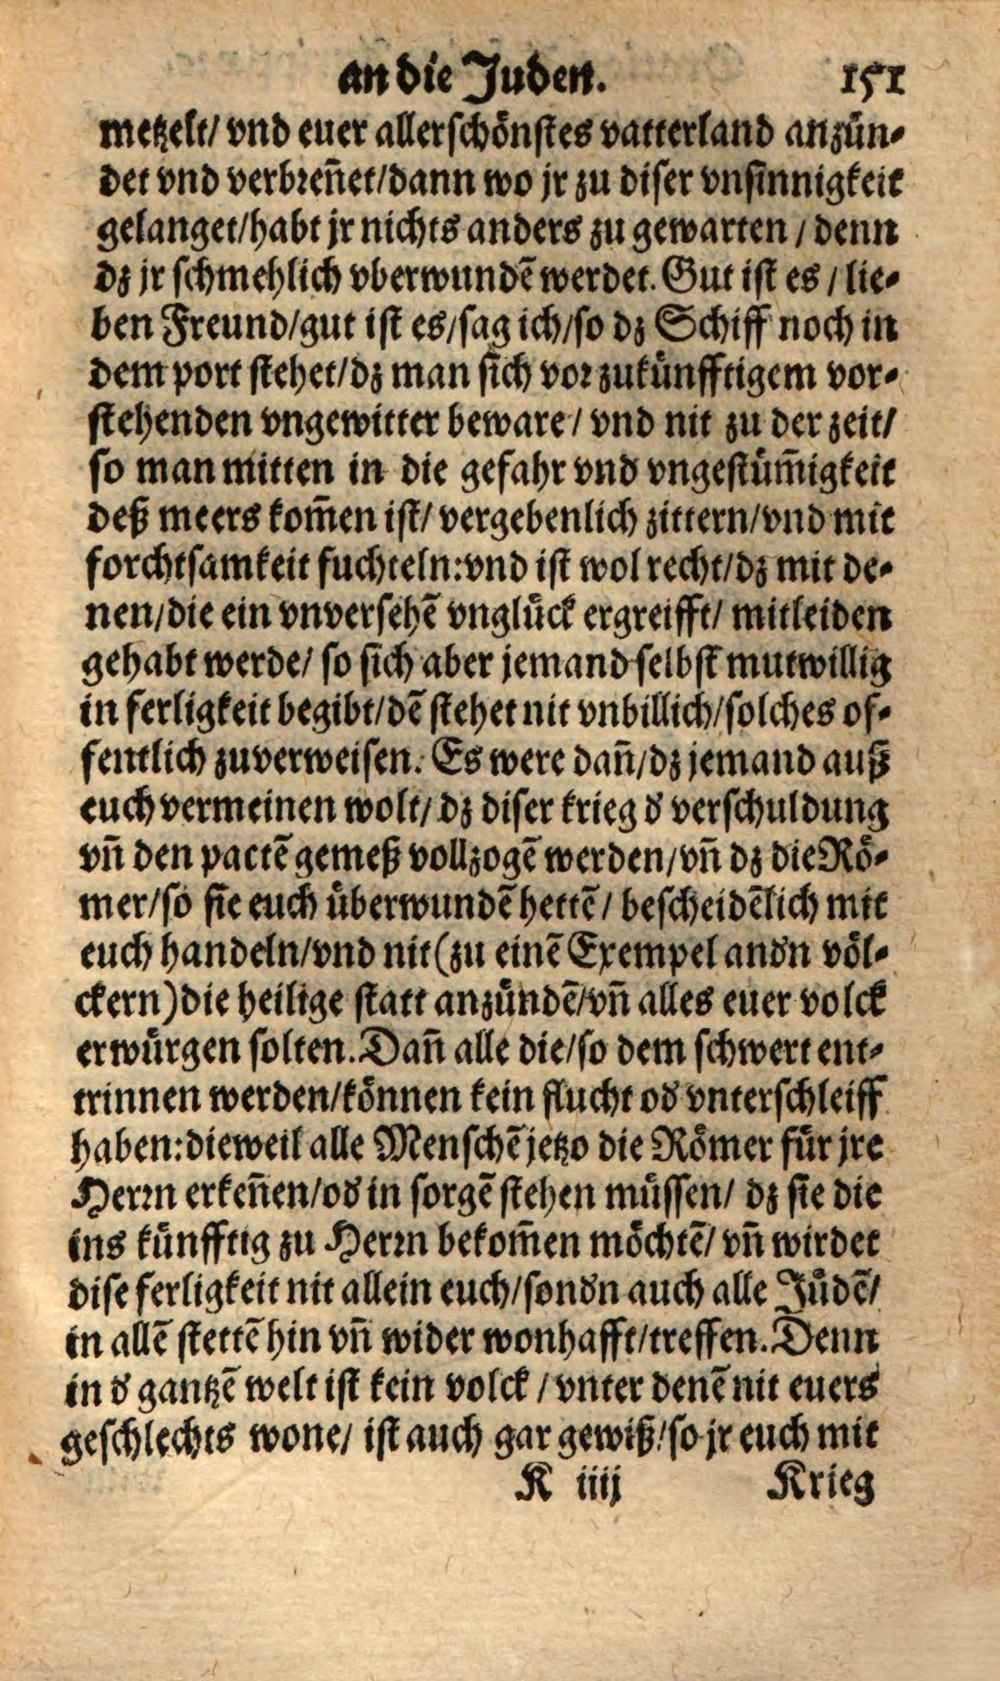 an die Juden. 151
metzelt/ vnd euer allerschönstes vatterland anzün-
det vnd verbreñet/dann wo jr zu diser vnsinnigkeit
gelanget/habt jr nichts anders zu gewarten / denn
dz jr schmehlich vberwundē werdet. Gut ist es / lie-
ben Freund/gut ist es/sag ich/so dz Schiff noch in
dem port stehet/dz man sich vor zukünfftigem vor-
stehenden vngewitter beware/ vnd nit zu der zeit/
so man mitten in die gefahr vnd vngestüm̃igkeit
deß meers kom̃en ist/ vergebenlich zittern/vnd mit
forchtsamkeit fuchteln:vnd ist wol recht/dz mit de-
nen/die ein vnversehē vnglück ergreifft/ mitleiden
gehabt werde/ so sich aber jemand selbst mutwillig
in ferligkeit begibt/dē stehet nit vnbillich/solches of-
fentlich zuverweisen. Es were dañ/dz jemand auß
euch vermeinen wolt/ dz diser krieg d verschuldung
vñ den pactē gemeß vollzogē werden/vñ dz die Rö-
mer/so sie euch überwundē hettē/ bescheidēlich mit
euch handeln/vnd nit (zu einē Exempel andn völ-
ckern) die heilige statt anzündē/vñ alles euer volck
erwürgen solten. Dañ alle die/so dem schwert ent-
trinnen werden/können kein flucht od vnterschleiff
haben:dieweil alle Menschē jetzo die Römer für jre
Herrn erkeñen/od in sorgē stehen müssen/ dz sie die
ins künfftig zu Herrn bekom̃en möchtē/ vñ wirdet
dise ferligkeit nit allein euch/sondn auch alle Jüdē/
in allē stettē hin vñ wider wonhafft/treffen. Denn
in d gantzē welt ist kein volck / vnter denē nit euers
geschlechts wone/ ist auch gar gewiß/so jr euch mit
K iiij Krieg